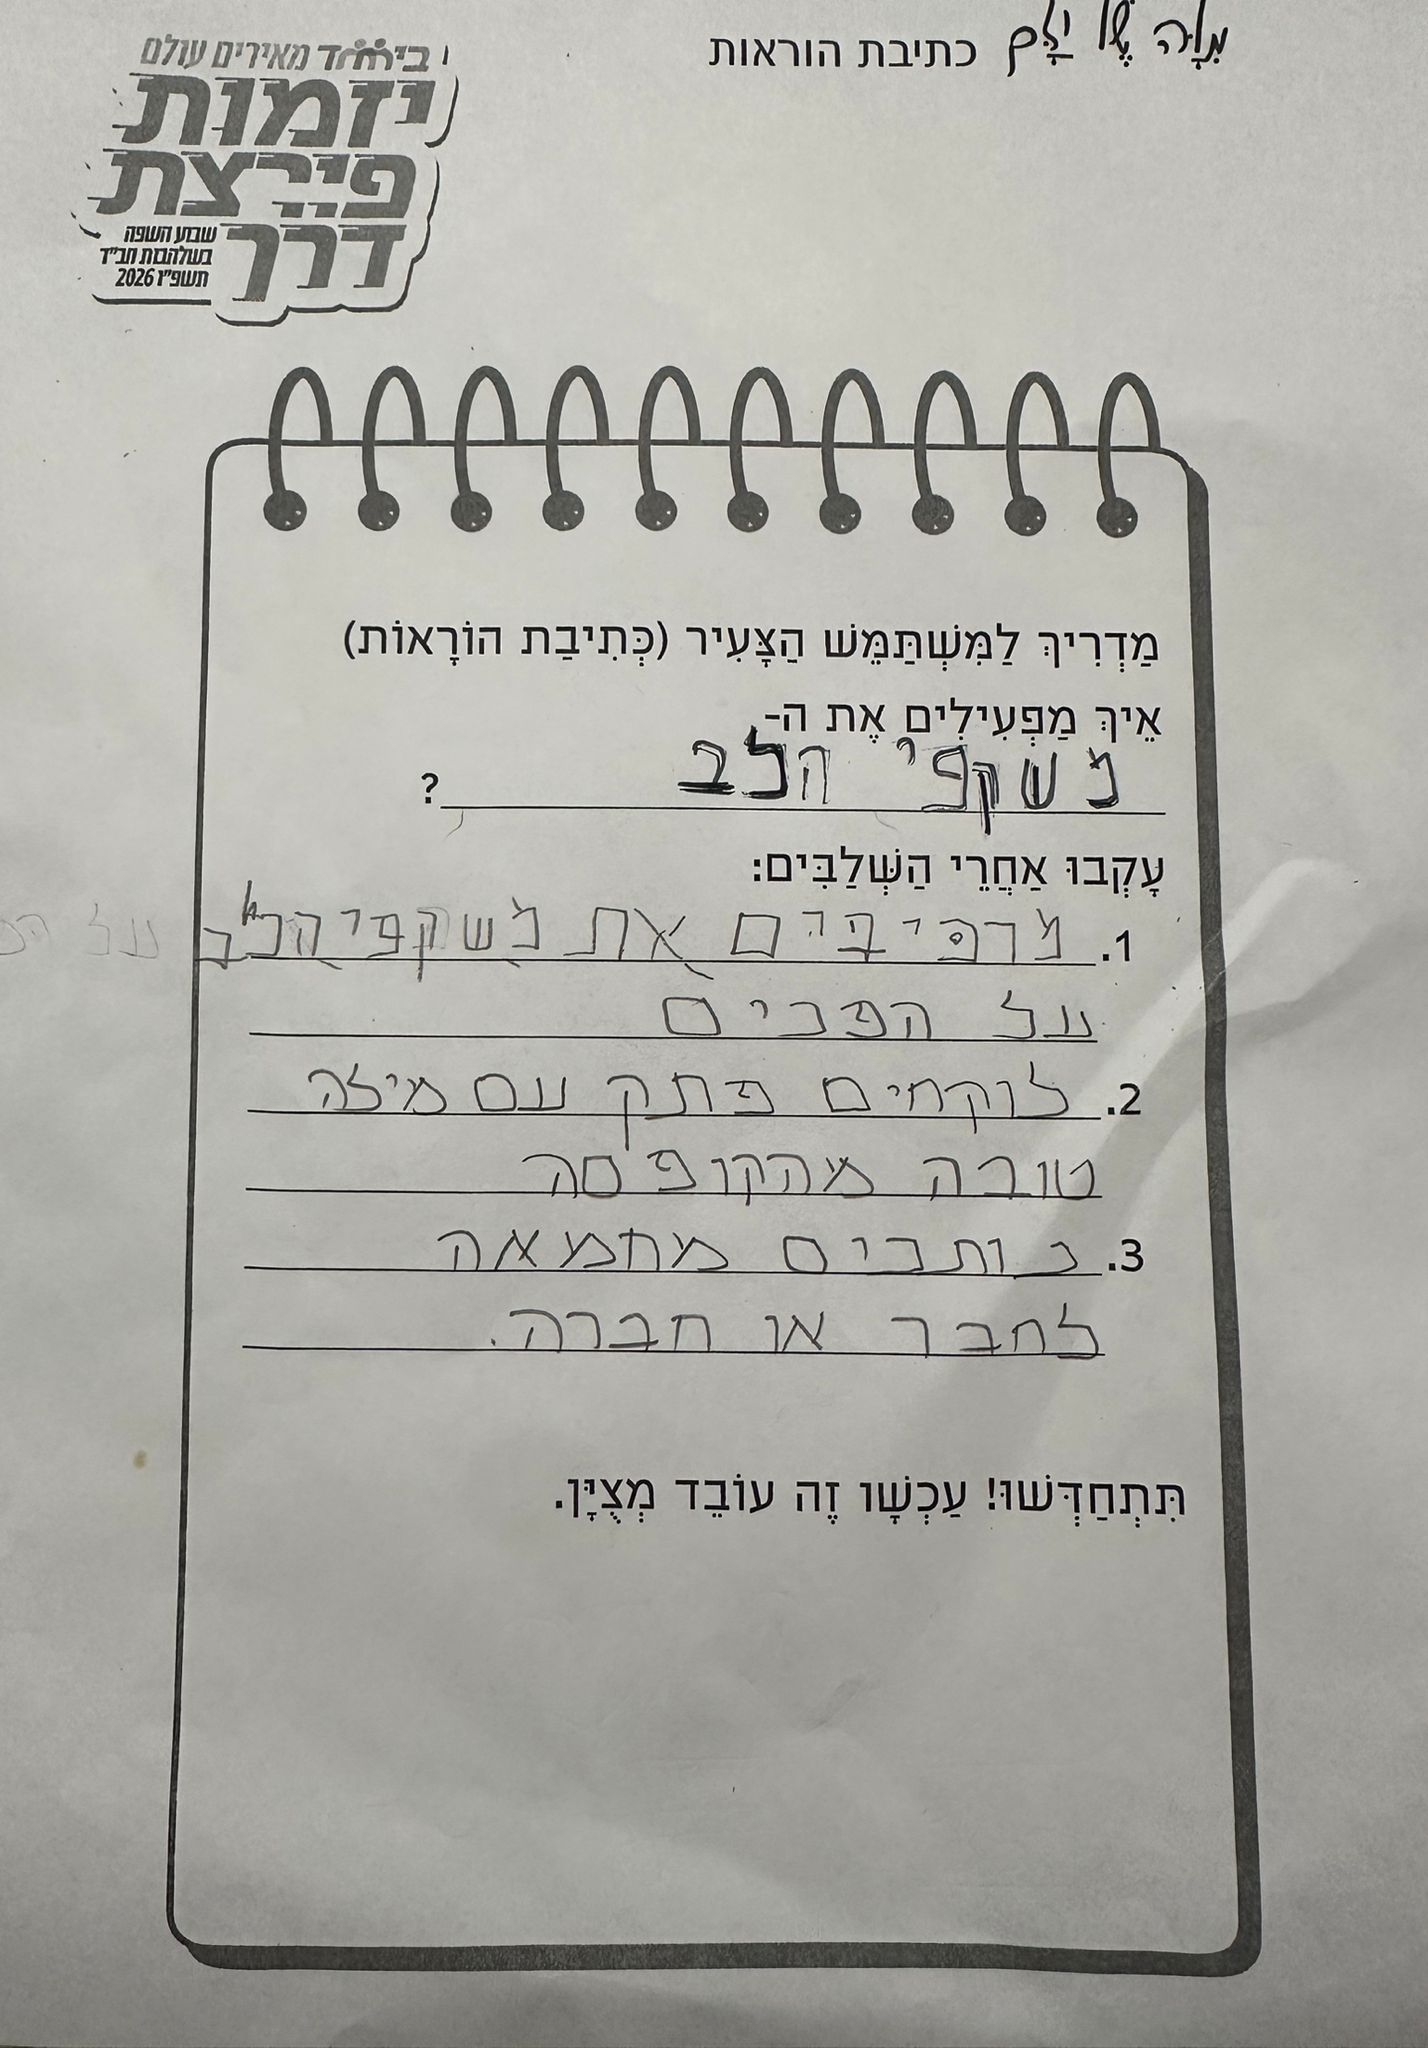 מִלָּה שֶׁל יָזָּם כתיבת הוראות
בי״חד מאירים עולם
יזמות
פורצת
דרך
שבוע השפה
בשלהבות חב״ד
תשפ״ו 2026
מַדְרִיךְ לַמִּשְׁתַּמֵּשׁ הַצָּעִיר (כְּתִיבַת הוֹרָאוֹת)
אֵיךְ מַפְעִילִים אֶת ה-
משקפי הלב ?
עָקְבוּ אַחֲרֵי הַשְּׁלַבִּים:
1. מרכיבים את משקפי הלב על
על הפנים
2. לוקחים פתק עם מילה
טובה מהקופסה
3. כותבים מחמאה
לחבר או חברה.
תִּתְחַדְּשׁוּ! עַכְשָׁו זֶה עוֹבֵד מְצֻיָּן.